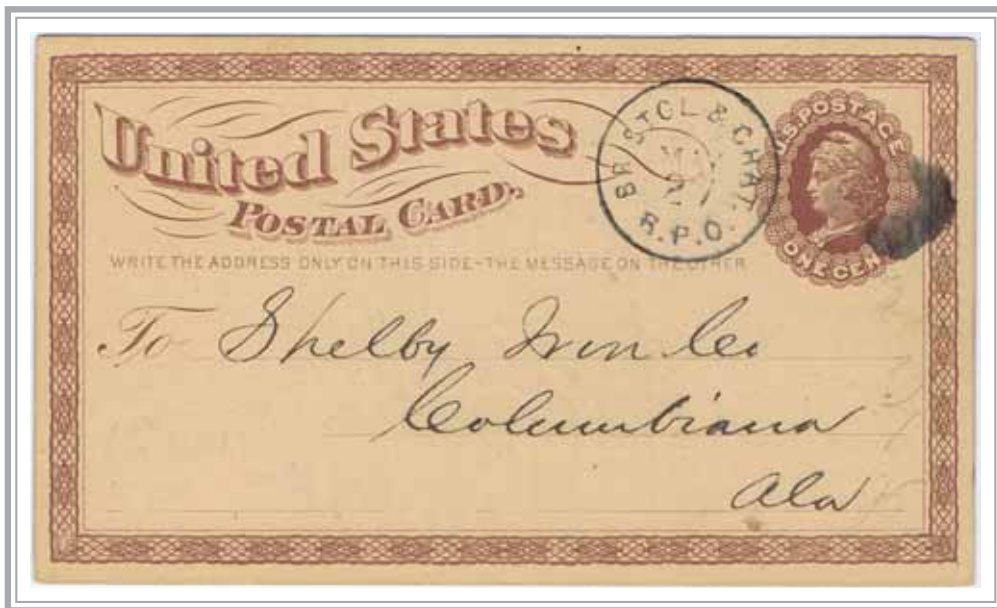 United States
POSTAL CARD.
WRITE THE ADDRESS ONLY ON THIS SIDE-THE MESSAGE ON THE OTHER
BRISTOL & CHAT.
R.P.O.
U.S. POSTAGE
ONE CENT
To Shelby Iron Co
Columbiana
Ala